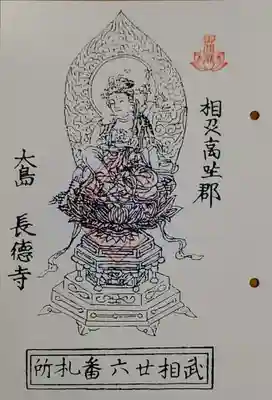 相刕高坐郡
大島 長德寺
武相廿六番札所